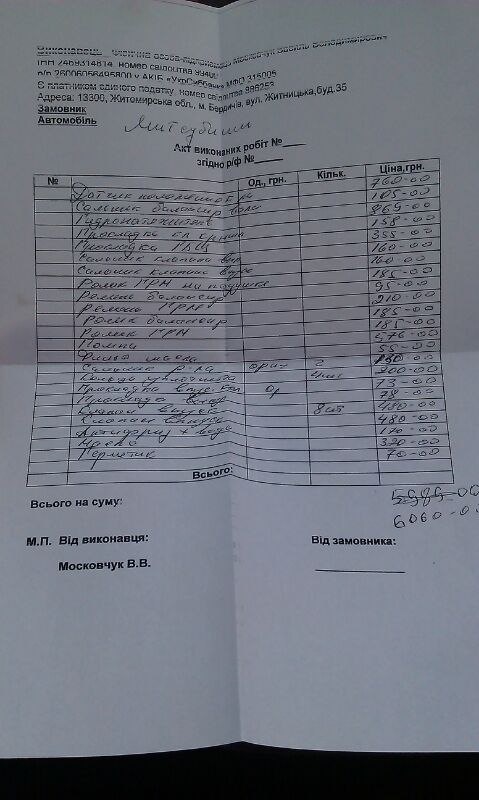 Виконавець Фізична особа-підприємець Московчук Василь Володимирович
ІНН 2469314814, номер свідоцтва
р/р 26006056495800 у АКІБ «УкрСиббанк» МФО 315005
Є платником єдиного податку, номер свідоцтва 986253
Адреса: 13300, Житомирська обл., м. Бердичів, вул. Житницька,буд.35
Замовник
Автомобіль Митсубиши
Акт виконаних робіт №____
згідно р/ф №____
№ Од., грн. Кільк. Ціна,грн.
Датчик положения 760-00
Сальник балансир вала 105-00
Гидронатяжитель 865-00
Прокладка кл. крышки 158-00
Прокладка ГБЦ 355-00
Сальник клапана вып 160-00
Сальник клапана впуск 160-00
Ролик ГРМ на подушке 185-00
Ремень балансир 95-00
Ремень ГРМ 210-00
Ролик балансир 185-00
Ролик ГРМ 185-00
Помпа 576-00
Фильтр масла 55-00
Сальник р-ла ориг 2 130-00
Кольца 4шт 200-00
Прокладка впус. Ор 73-00
Прокладка 78-00
Клапан впуск 8шт 480-00
Клапан выпуск 480-00
Антифриз + вода 170-00
320-00
Герметик 70-00
Всього:
Всього на суму: 5985-00
6060-00
М.П. Від виконавця: Від замовника:
Московчук В.В.